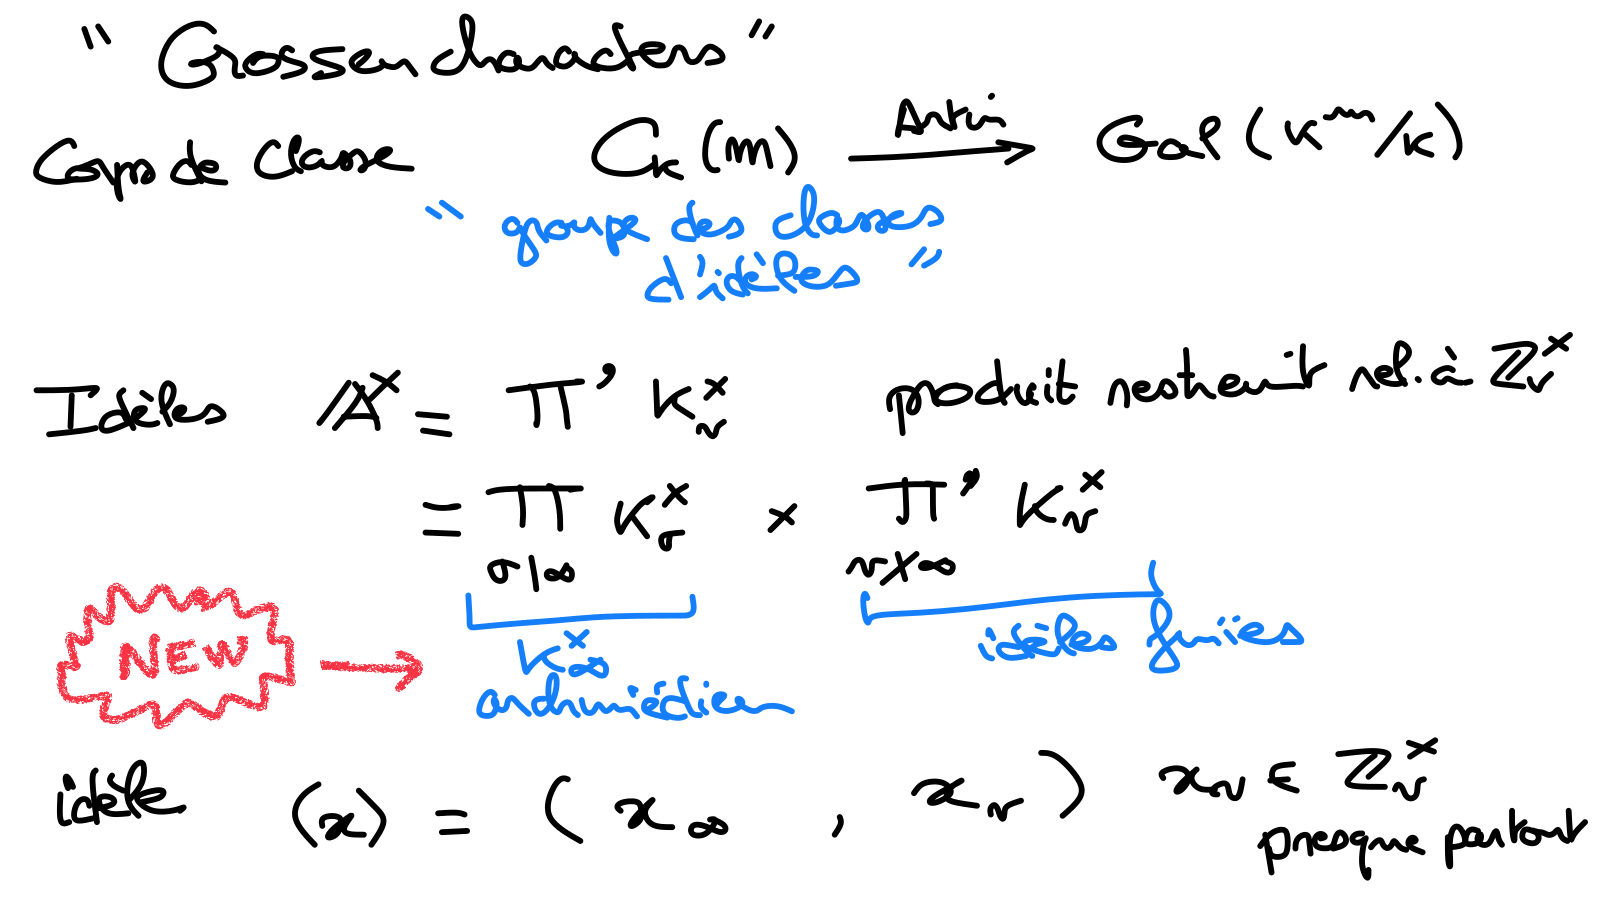 " Grossencharacters "
Corps de classe C_K(m) —Artin→ Gal(K^m/K)
" groupe des classes
d'idèles "
Idèles 𝔸^× = ∏' K_v^× produit restreint rel. à ℤ_v^×
= ∏_{σ|∞} K_σ^× × ∏'_{v∤∞} K_v^×
NEW → K_∞^× idèles finies
archimédien
idèle (x) = ( x_∞ , x_v ) x_v ∈ ℤ_v^×
presque partout